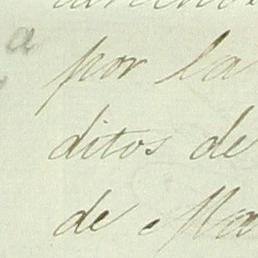 por la
ditos de
de Ma